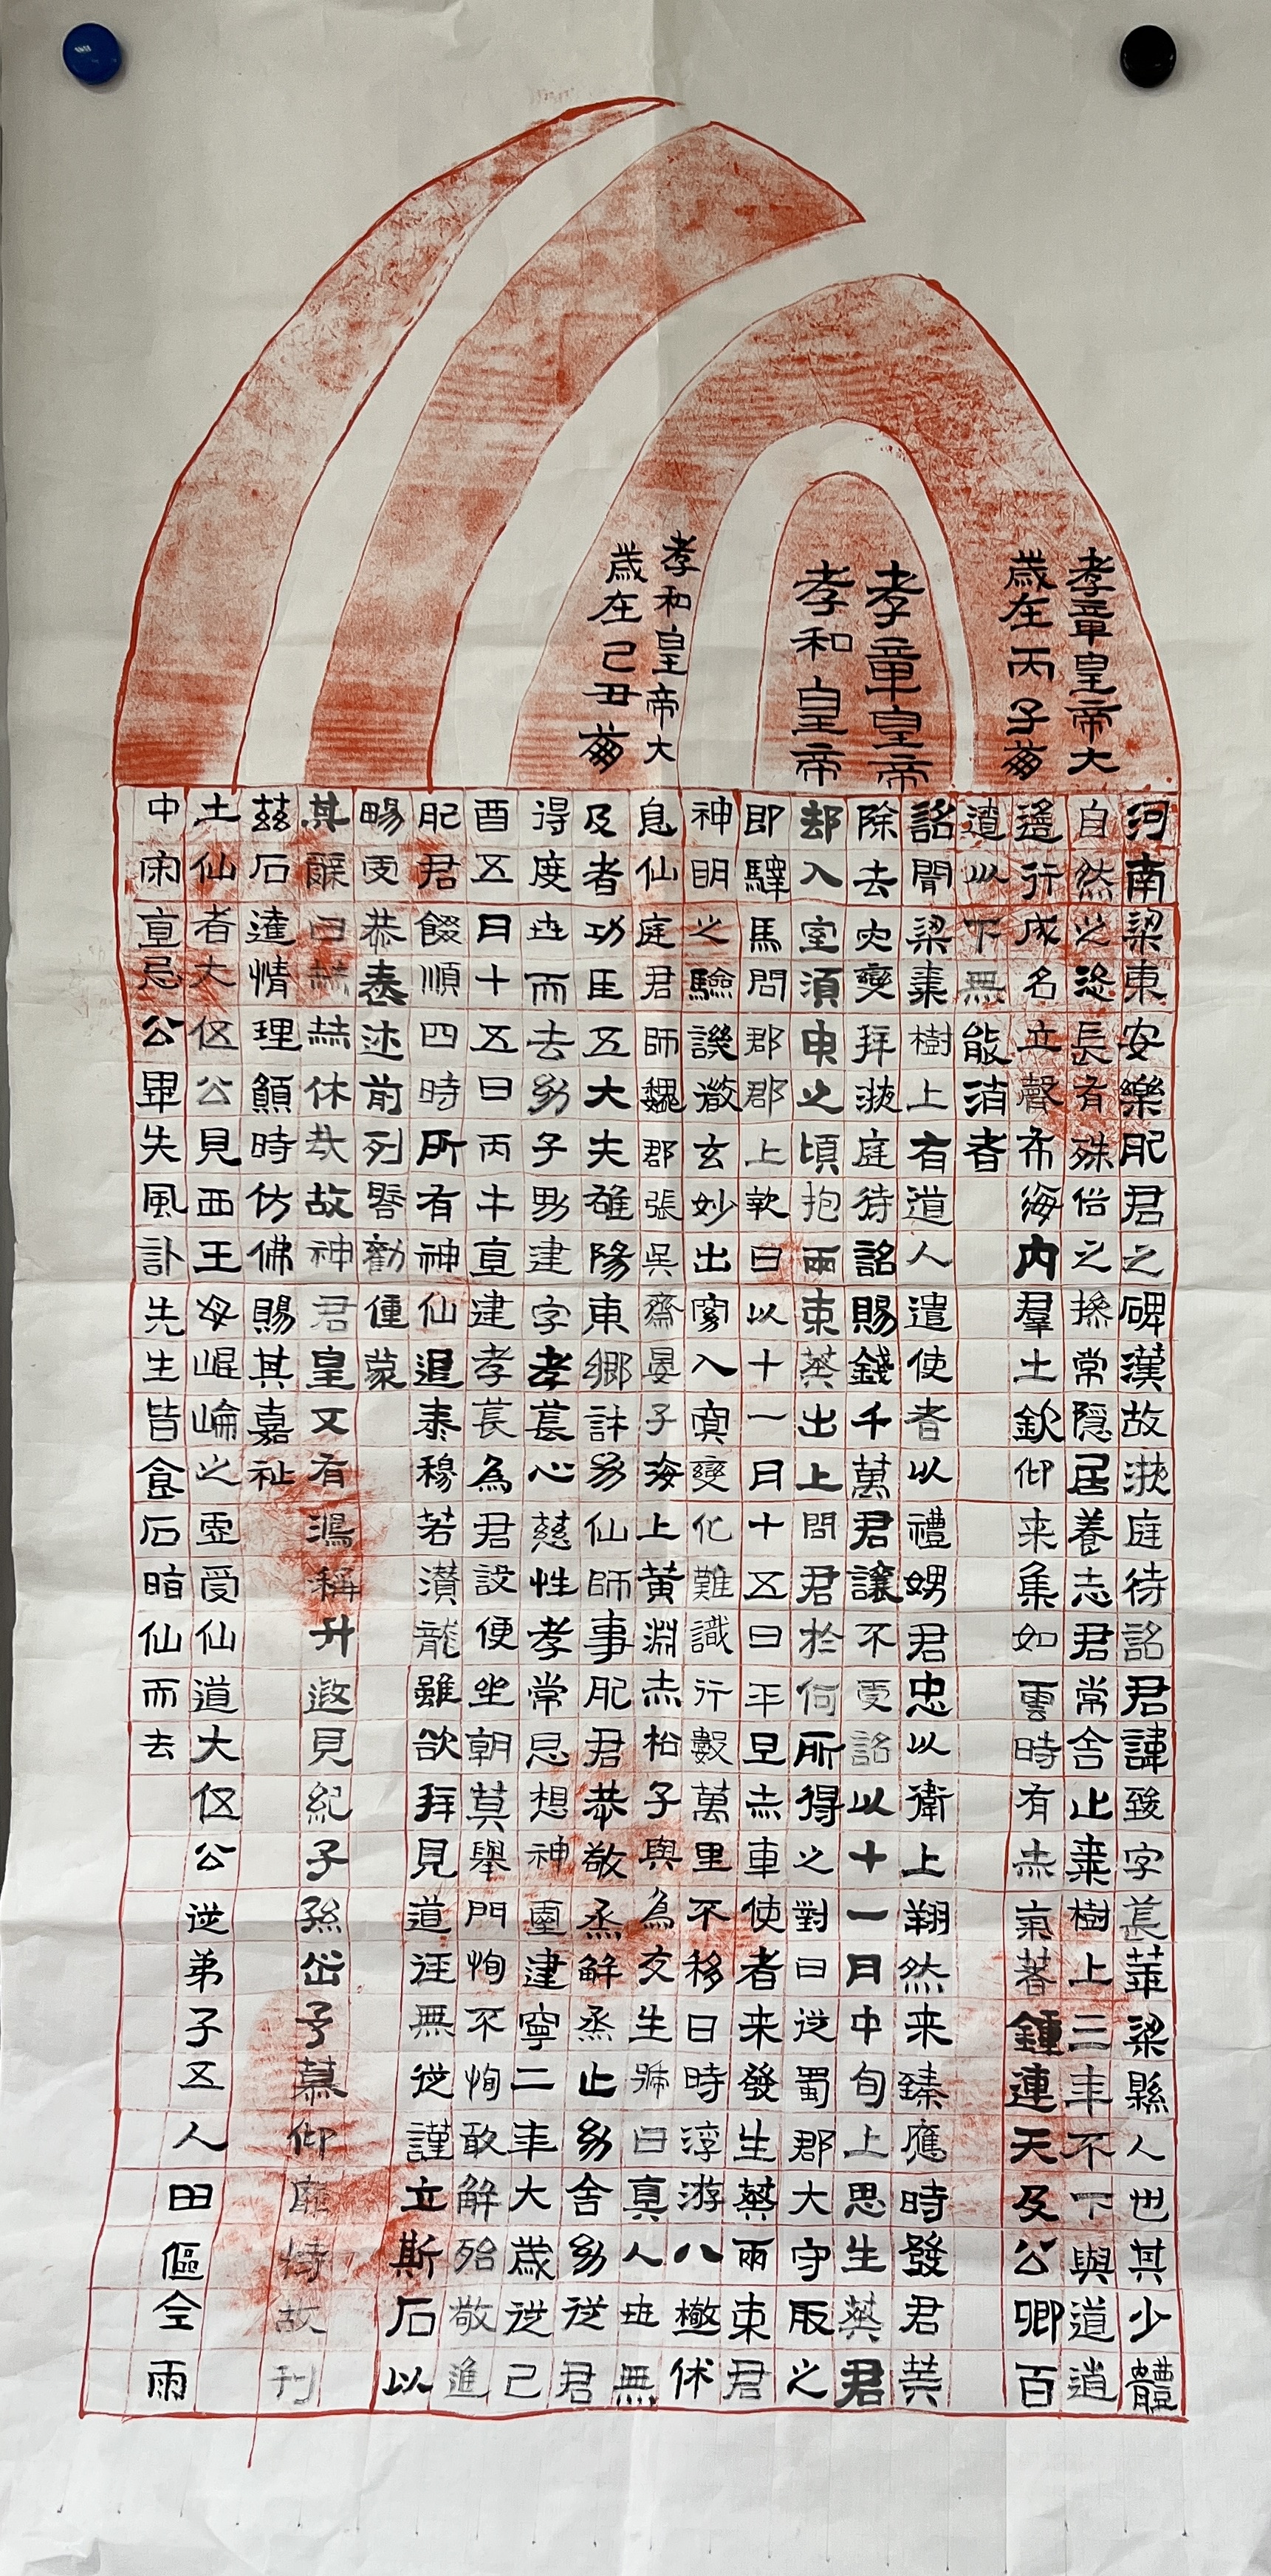 孝章皇帝大
歲在丙子崩
孝章皇帝
孝和皇帝
孝和皇帝大
歲在己丑崩
河南梁東安樂肥君之碑漢故掖庭待詔君諱致字萇華梁縣人也其少體
自然之恣長有殊俗之操常隱居養志君常舍止棗樹上三年不下與道逍
遙行成名立聲布海內群士欽仰来集如雲時有赤氣著鍾連天及公卿百
遣以下無能消者
詔聞梁棗樹上有道人遣使者以禮娉君忠以衛上翔然来臻應時發君其
除去灾變拜掖庭待詔賜錢千萬君讓不受詔以十一月中旬上思生葵君
却入室須臾之頃抱兩束葵出上問君於何所得之對曰從蜀郡大守取之
即驛馬問郡郡上報曰以十一月十五日平旦赤車使者来發生葵兩束君
神明之驗譏徹玄妙出窈入冥變化難識行數萬里不移日時浮游八極休
息仙庭君師魏郡張吳齋晏子海上黃淵赤松子與為友生號曰真人世無
及者功臣五大夫雒陽東鄉許幼仙師事肥君恭敬烝解烝止幼舍幼從君
得度世而去幼子男建字孝萇心慈性孝常思想神靈建寧二年大歲從己
酉五日十五日丙午直建孝萇為君設便坐朝莫舉門恂不恂敢解殆敬進
肥君餟順四時所有神仙退泰穆若潛龍雖欲拜見道徑無從謹立斯石以
暢受恭表述前列啓勸僮蒙
其辭曰赫赫休哉故神君皇又有鴻稱升遐見紀子孫企予慕仰靡恃故刊
茲石達情理願時仿佛賜其嘉祉
土仙者大伍公見西王母崐崙之虛受仙道大伍公從弟子五人田傴全雨
中宋直忌公畢失風訃先生皆食石脂仙而去